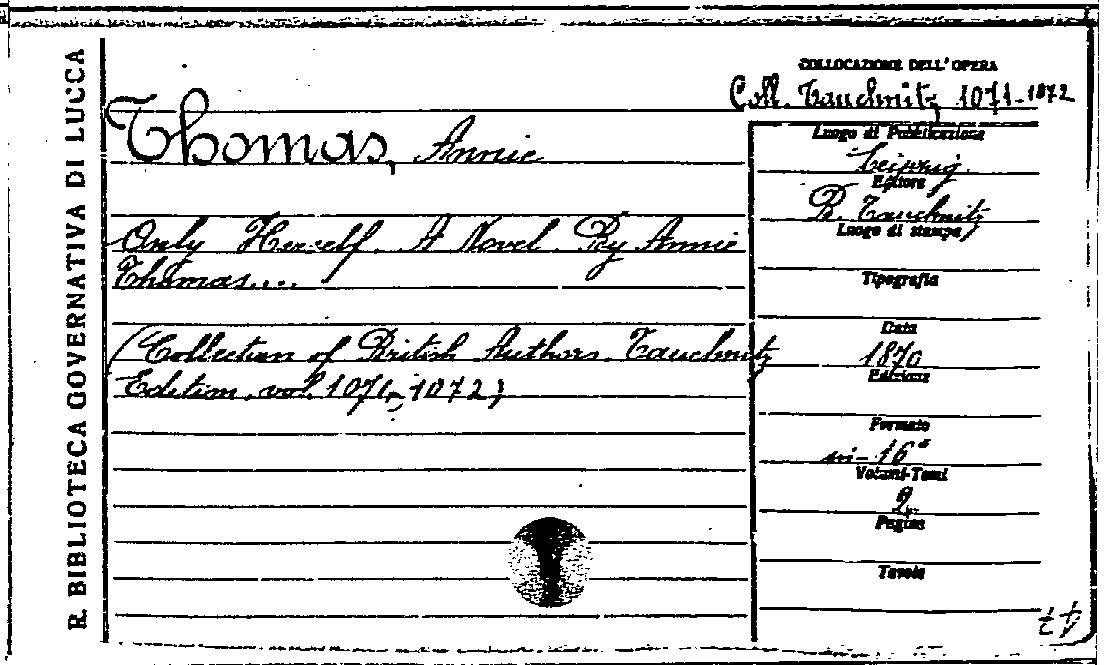 R. BIBLIOTECA GOVERNATIVA DI LUCCA
COLLOCAZIONE DELL'OPERA
Coll. Tauchnitz 1071-1872
Thomas, Annie
Only Herself. A Novel. By Annie
Thomas....
(Collection of British Authors. Tauchnitz
Edition. vol. 1071, 1072)
Luogo di Pubblicazione
Leipzig.
Editore
B. Tauchnitz
Luogo di stampa
Tipografia
Data
1870
Edizione
Formato
in-16°
Volumi-Tomi
2
Pagine
Tavole